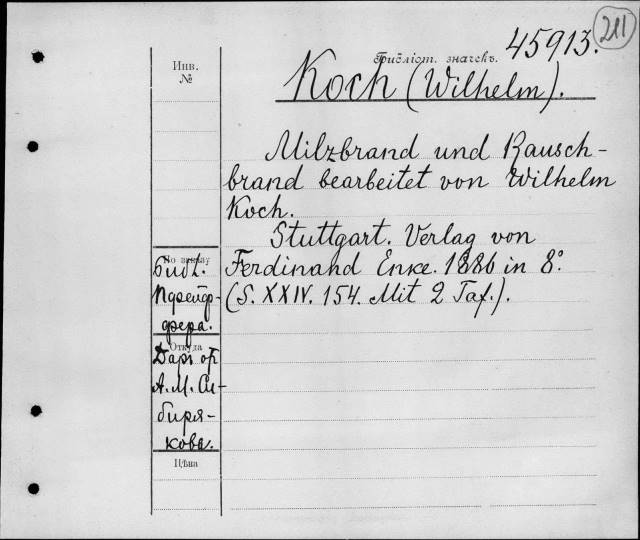 211
Библіот. значекъ. 45913.
Инв.
№
Koch (Wilhelm).
Milzbrand und Rausch-
brand bearbeitet von Wilhelm
Koch.
Stuttgart. Verlag von
Ferdinand Enke. 1886 in 8°.
(S. XXIV. 154. Mit 2 Taf.).
По
Библ.
Пфейф-
фера.
Откуда
Даръ от
А. М. Си-
биря-
кова.
Цѣна